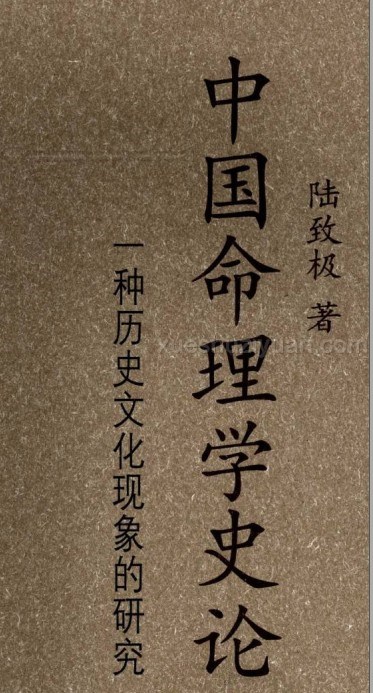 陆致极 著
中国命理学史论
一种历史文化现象的研究